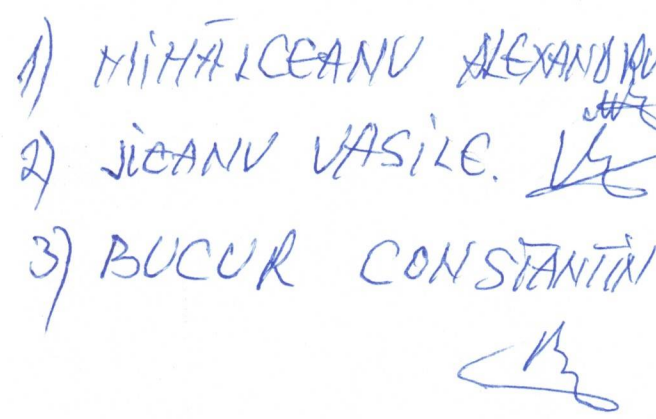 1) MIHĂLCEANU ALEXANDRU
2) JIEANU VASILE.
3) BUCUR CONSTANTIN